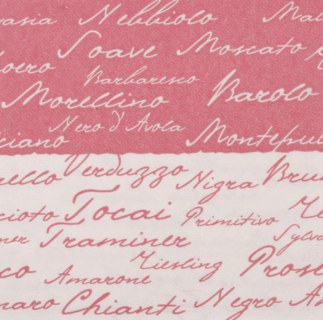 vasia Nebbiolo Mal
Soave Moscato
oero Barbaresco
Morellino Barolo
ciano Nero d'Avola Montepul
ello Verduzzo Nigra Bru
cioto Tocai Primitivo
ner Traminer Sylva
co Amarone Riesling Prose
maro Chianti Negro A